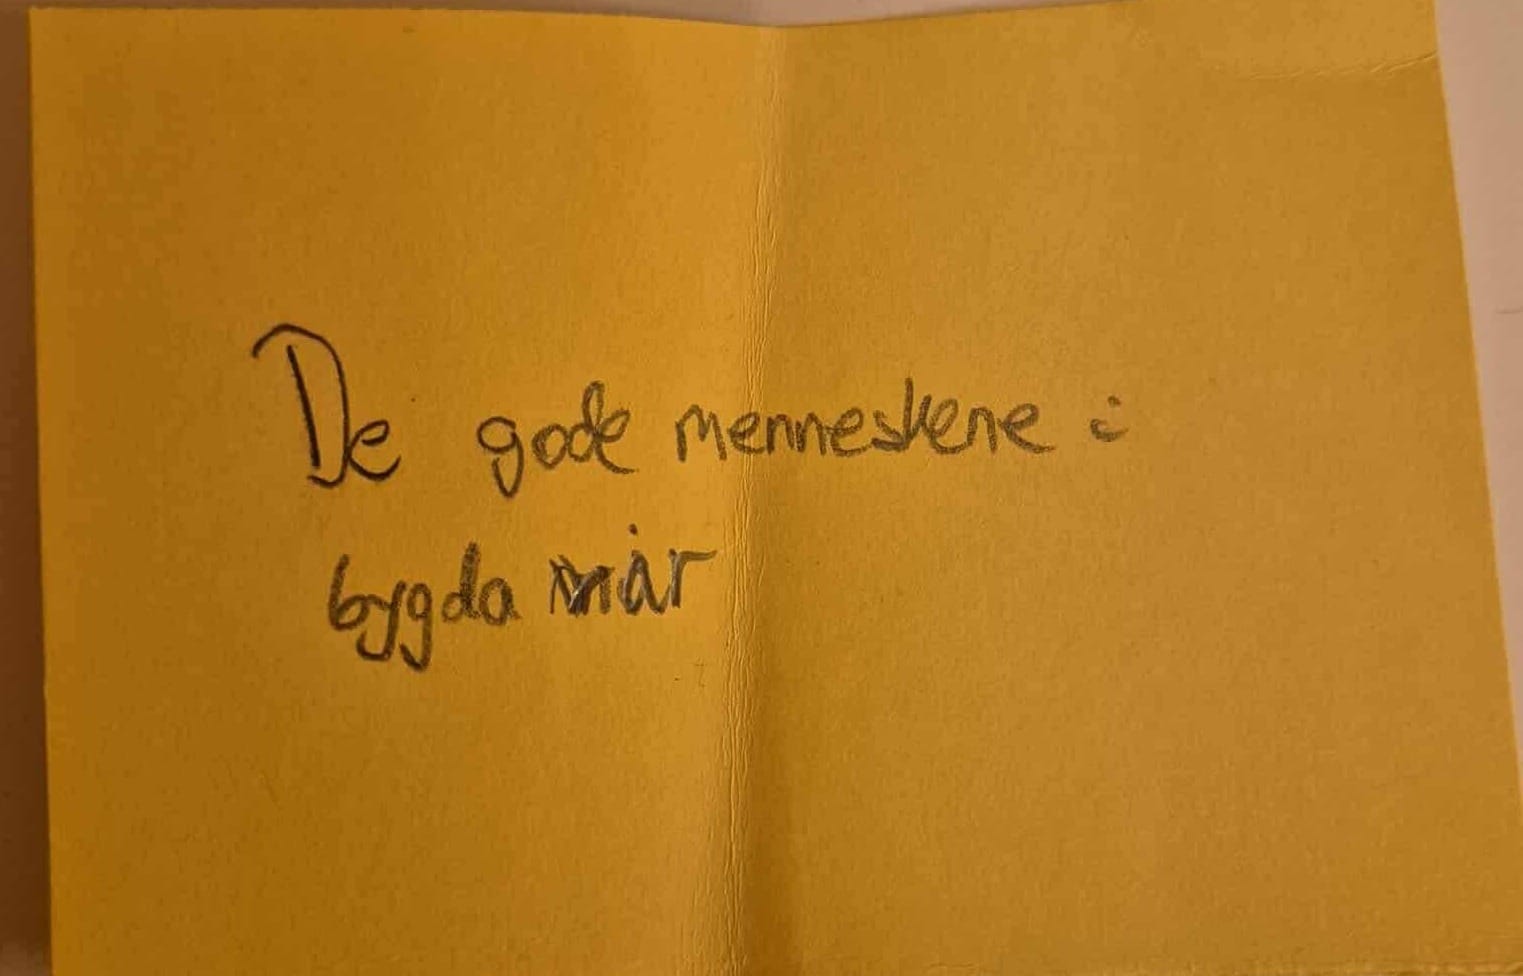 De gode menneskene i
bygda vår